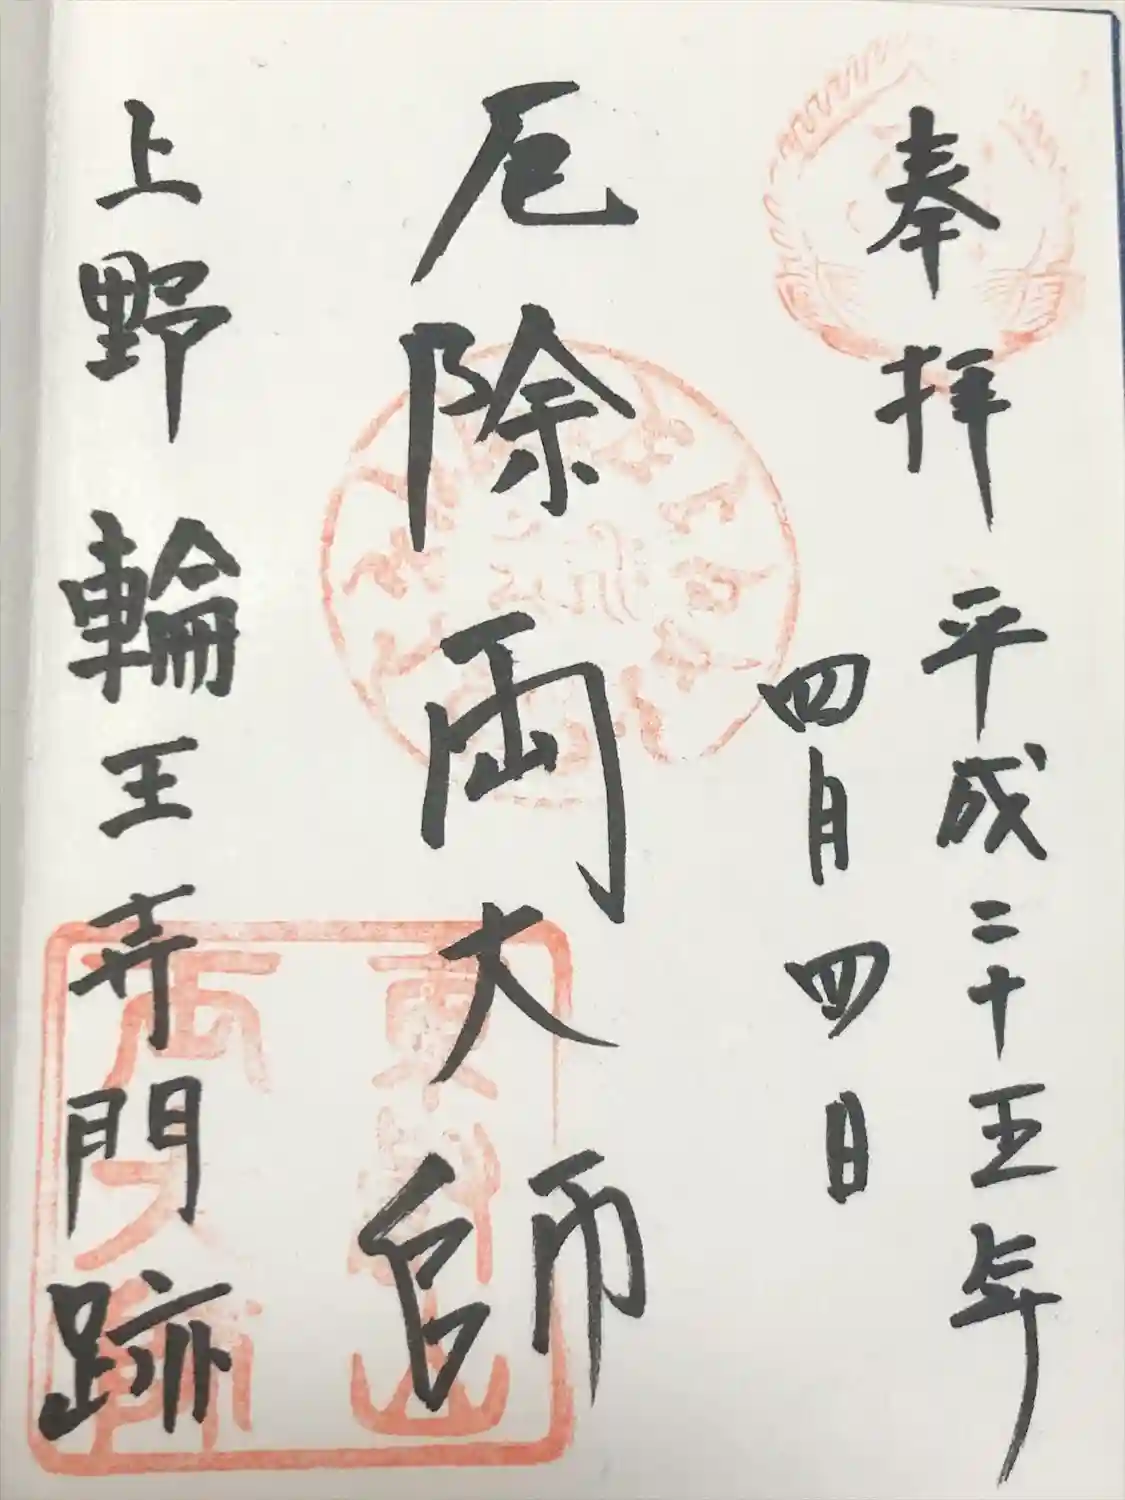 奉拝 平成二十五年
四月四日
厄除両大師
上野輪王寺門跡
東叡山
両大師